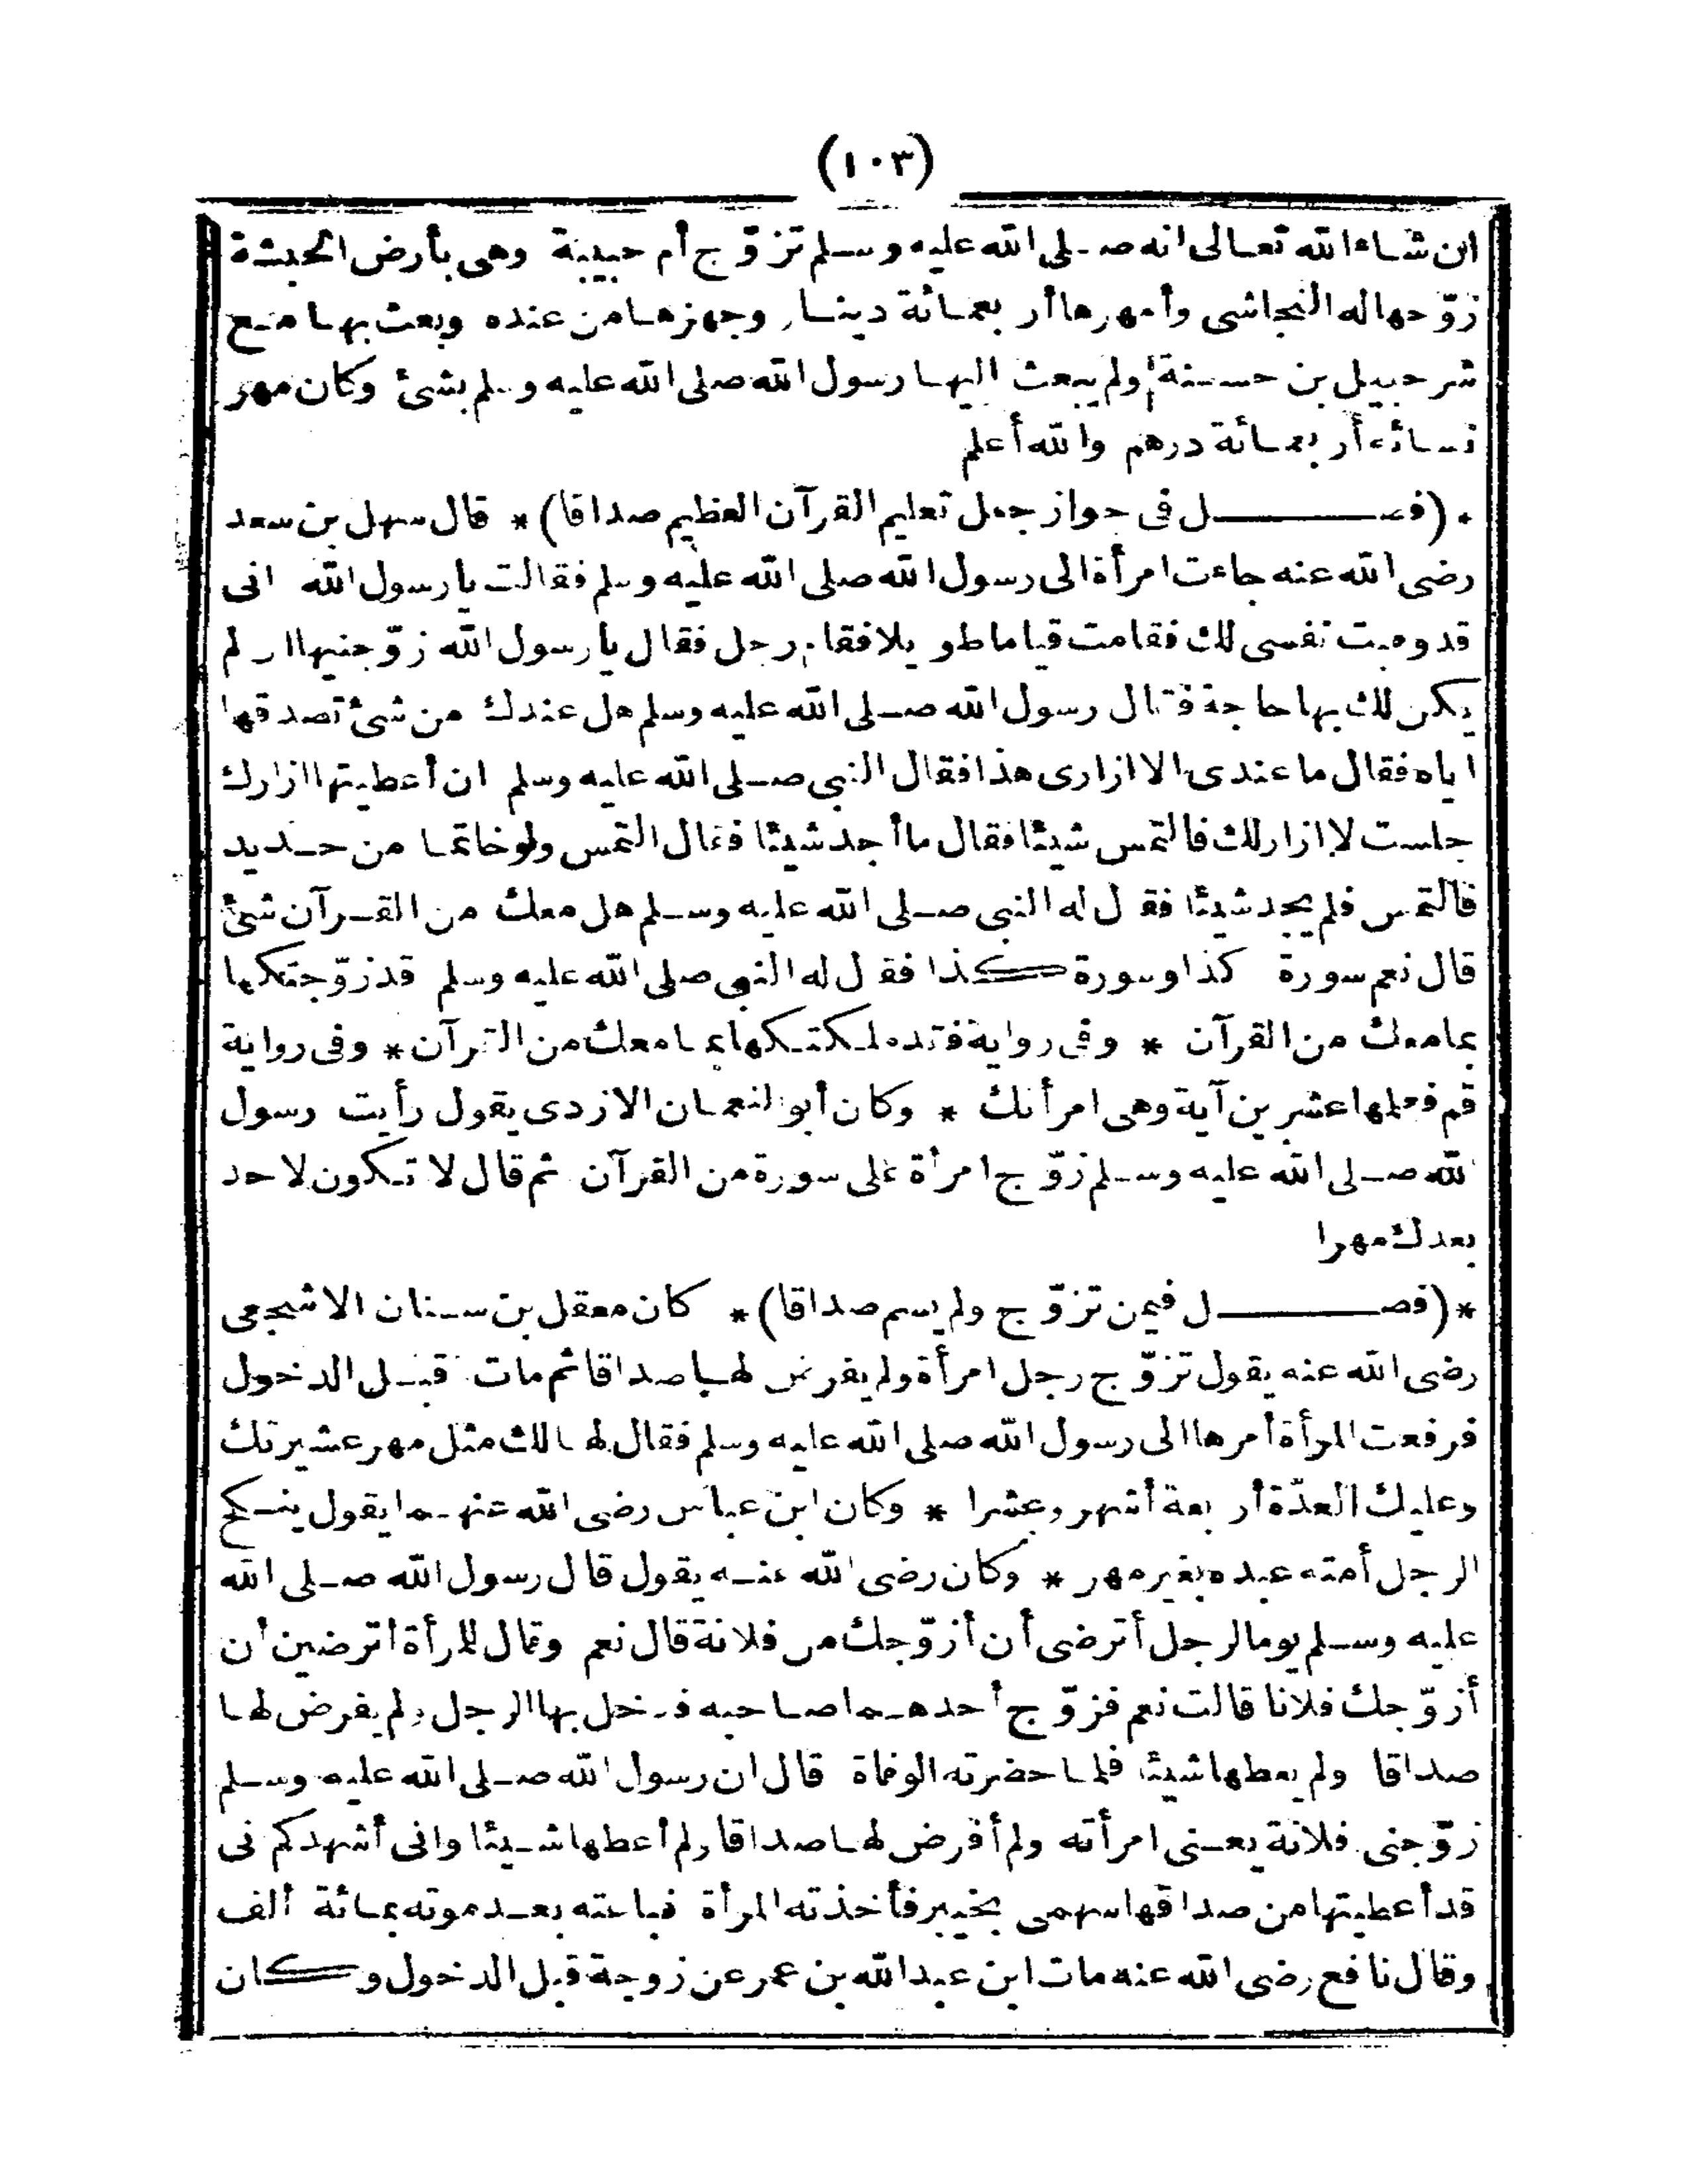 (١٠٣)
ان شاء الله تعالى انه صلى الله عليه وسلم تزوّج أم حبيبة وهى بأرض الحبشة
زوّجها له النجاشى وأمهرها أربعمائة دينار وجهزها من عنده وبعث بها مع
شرحبيل بن حسنة ولم يبعث اليها رسول الله صلى الله عليه وسلم بشئ وكان مهر
نسائه أربعمائة درهم والله أعلم
* (فصل فى جواز جعل تعليم القرآن العظيم صداقا) * قال سهل بن سعد
رضى الله عنه جاءت امرأة الى رسول الله صلى الله عليه وسلم فقالت يا رسول الله انى
قد وهبت نفسى لك فقامت قياما طويلا فقام رجل فقال يا رسول الله زوّجنيها ان لم
يكن لك بها حاجة فقال رسول الله صلى الله عليه وسلم هل عندك من شئ تصدقها
اياه فقال ما عندى الا ازارى هذا فقال النبى صلى الله عليه وسلم ان أعطيتها ازارك
جلست لا ازار لك فالتمس شيئا فقال ما أجد شيئا فقال التمس ولو خاتما من حديد
فالتمس فلم يجد شيئا فقال له النبى صلى الله عليه وسلم هل معك من القرآن شئ
قال نعم سورة كذا وسورة كذا فقال له النبى صلى الله عليه وسلم قد زوّجتكها
بما معك من القرآن * وفى رواية فقد ملكتكها بما معك من القرآن * وفى رواية
قم فعلمها عشرين آية وهى امرأتك * وكان أبو النعمان الازدى يقول رأيت رسول
الله صلى الله عليه وسلم زوّج امرأة على سورة من القرآن ثم قال لا تكون لاحد
بعدك مهرا
* (فصل فيمن تزوّج ولم يسم صداقا) * كان معقل بن سنان الاشجعى
رضى الله عنه يقول تزوّج رجل امرأة ولم يفرض لها صداقا ثم مات قبل الدخول
فرفعت المرأة أمرها الى رسول الله صلى الله عليه وسلم فقال لها لك مثل مهر عشيرتك
وعليك العدّة أربعة أشهر وعشرا * وكان ابن عباس رضى الله عنهما يقول ينكح
الرجل أمته عبده بغير مهر * وكان رضى الله عنه يقول قال رسول الله صلى الله
عليه وسلم يوما لرجل أترضى أن أزوّجك من فلانة قال نعم وقال للمرأة أترضين أن
أزوّجك فلانا قالت نعم فزوّج أحدهما صاحبه فدخل بها الرجل ولم يفرض لها
صداقا ولم يعطها شيئا فلما حضرته الوفاة قال ان رسول الله صلى الله عليه وسلم
زوّجنى فلانة يعنى امرأته ولم أفرض لها صداقا ولم أعطها شيئا وانى أشهدكم انى
قد أعطيتها من صداقها سهمى بخيبر فأخذته المرأة فباعته بعد موته بمائة ألف
وقال نافع رضى الله عنه مات ابن عبد الله بن عمر عن زوجة قبل الدخول وكان